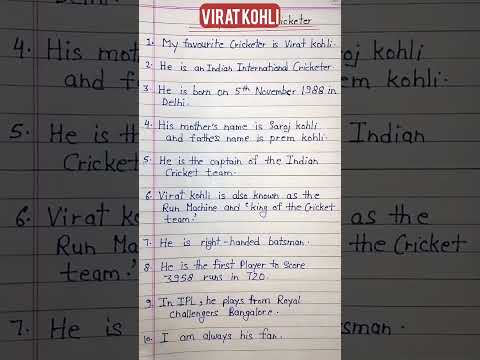 VIRAT KOHLI
Cricketer
1. My favourite Cricketer is Virat Kohli.
2. He is an Indian International Cricketer
3. He is born on 5th November 1988 in
Delhi.
4. His mother's name is Saroj kohli
and fathes name is prem kohli.
5. He is the captain of the Indian
Cricket team.
6. Virat kohli is also known as the
Run Machine and 'king of the Cricket
team.'
7. He is right-handed batsman.
8. He is the first Player to Score
3958 runs in T20.
9. In IPL, he plays from Royal
challengers Bangalore.
10. I am always his fan.
4. His mothe
and fathe
5. He is the
Cricket
6. Virat ko
Run Mac
team.'
7. He is
oj kohli
kohli.
Indian
as the
the Cricket
sman.